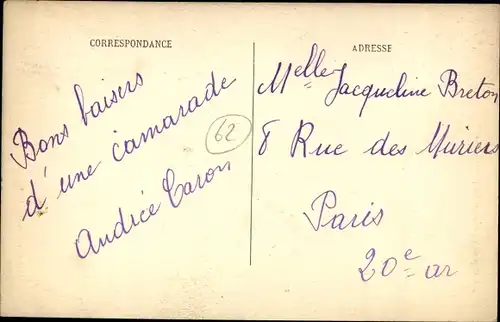 CORRESPONDANCE
Bons baisers
d'une camarade
Andrée Caron
62
ADRESSE
Melle Jacqueline Breton
8 Rue des Muriers
Paris
20e ar